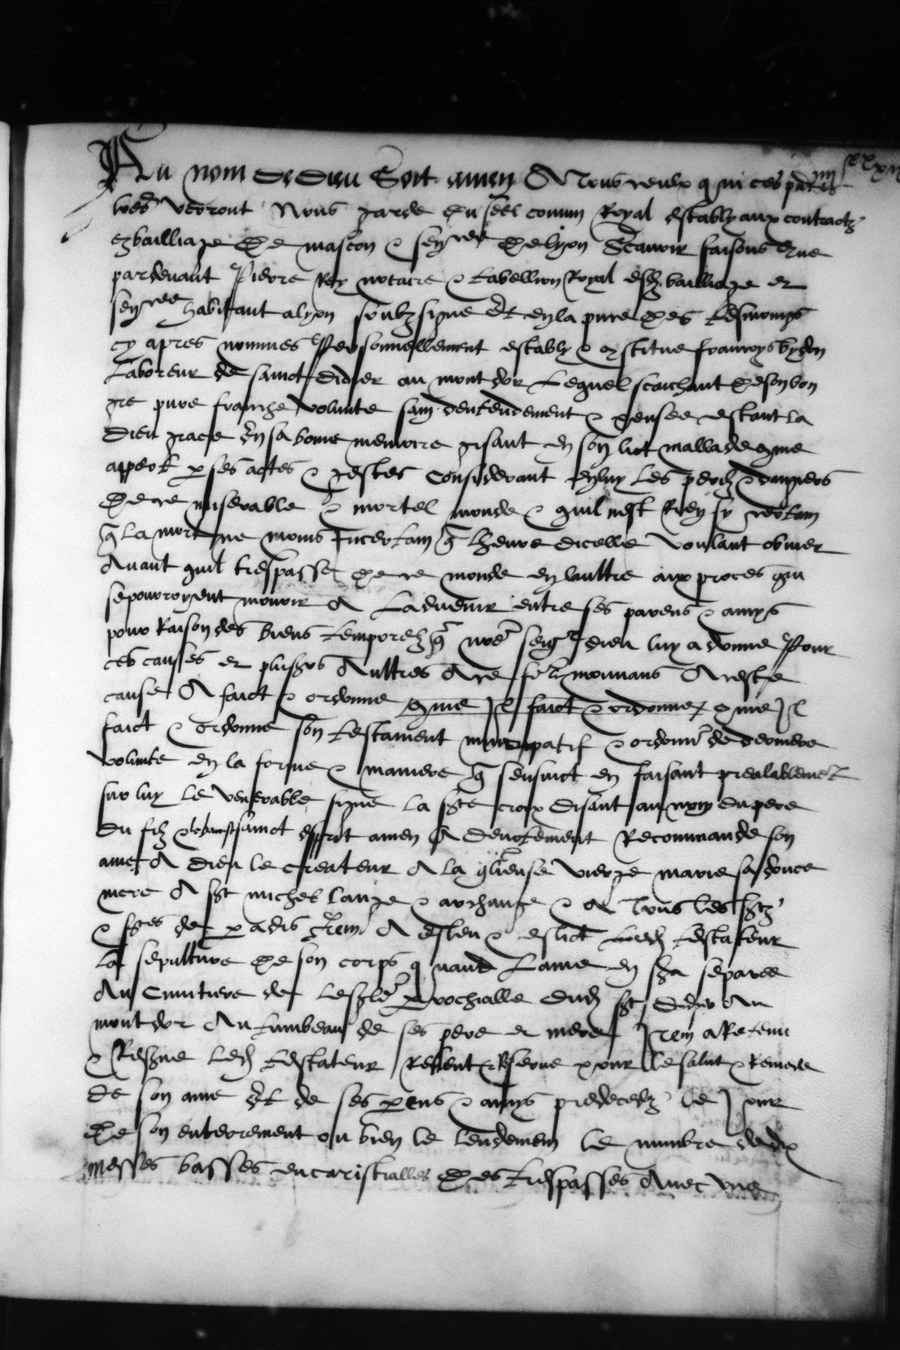 Au nom de Dieu Soit amen A tous ceulx qui ces pntes
lres verront Nous garde du seel comun Royal estably aux contractz
ez bailliage de mascon & senree de lyon Scavoir faisons que
pardevant Pierre Rey notaire & tabellion Royal esd bailliage et
senree habitant a lyon soubzsigne Et en la pnce des tesmoings
cy apres nommes Personnellement estably & constitue francoys
Laboreur de sainct didier au mont dor Lequel scaichant de son bon
gre pure franche volunte sain dentendement & pensee estant la
Dieu grace En sa bonne memoire gisant en son lict mallade comme
appert p ses actes & gestes Considerant en luy les perilz & dangiers
de ce miserable & mortel monde & quil nest Rien si certain
q la mort ne moins Incertain q lheure dicelle voulant obvier
Avant quil trespasse de ce monde en laultre aux proces qui
se pourroyent mouvoir A Ladvenir entre ses parens & amys
pour Raison des biens temporelz q nre seigr dieu luy a donne Pour
ces causes et plusrs Aultres A ce mouvans A ceste
cause A faict & ordonne comme Il faict & ordonne comme Il
faict & Ordonne son testament nuncupatif & ordonnce de derniere
volunte en la forme & maniere q sensuict en faisant prealablemet
sur luy le venerable signe la ste croix disant au nom du pere
du filz & du benoist sainct esprit amen A devotement Recommande son
ame A dieu le createur A la glieuse vierge marie sa doulce
mere A st michel lange & archange & A tous les stz
& stes de paradis Item A esleu & eslict Led testateur
la sepulture de son corps quand Lame en sra separee
Au Cimitiere de Lesglise parrochialle dud st Didier Au
mont dor Au tumbeau de ses pere et mere Item a Retenu
& Led testateur pour le salut & Remede
de son ame Et de ses parens & amys predecedz le Jour
de son enterrement ou bien le lendemain le numbre de dix
messes basses eucaristialles des trespasses Avec une